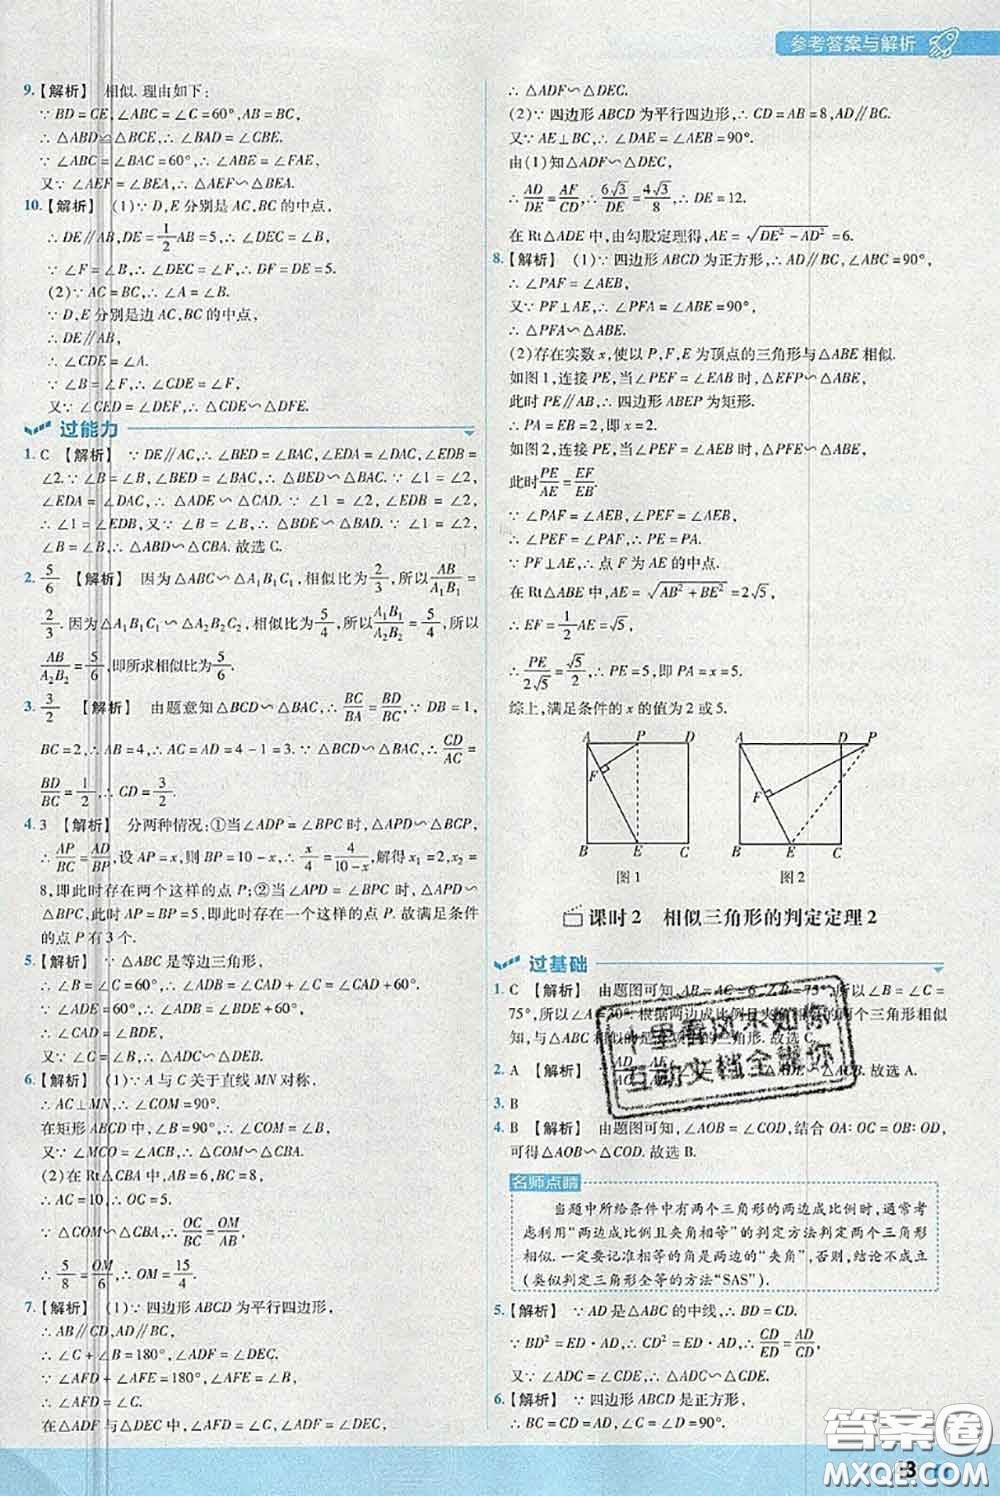 参考答案与解析
9.【解析】 相似. 理由如下:
∵ BD=CE,∠ABC=∠C=60°,AB=BC,
∴ △ABD≌△BCE,∴ ∠BAD=∠CBE.
∵ ∠ABC=∠BAC=60°,∴ ∠ABE=∠FAE,
又∵ ∠AEF=∠BEA,∴ △AEF∽△BEA.
10.【解析】 (1)∵ D,E 分别是 AC,BC 的中点,
∴ DE∥AB,DE=1/2AB=5,∴ ∠DEC=∠B.
∵ ∠F=∠B,∴ ∠DEC=∠F,∴ DF=DE=5.
(2)∵ AC=BC,∴ ∠A=∠B.
∵ D,E 分别是边 AC,BC 的中点,
∴ DE∥AB,
∴ ∠CDE=∠A.
∵ ∠B=∠F,∴ ∠CDE=∠F,
又∵ ∠CED=∠DEF,∴ △CDE∽△DFE.
过能力
1. C 【解析】 ∵ DE∥AC,∴ ∠BED=∠BAC,∠EDA=∠DAC,∠EDB=
∠2.∵ ∠B=∠B,∠BED=∠BAC,∴ △BED∽△BAC.∵ ∠1=∠2,
∠EDA=∠DAC,∴ △ADE∽△CAD.∵ ∠1=∠2,∠EDB=∠2,
∴ ∠1=∠EDB,又∵ ∠B=∠B,∴ △BED∽△BDA.∵ ∠1=∠2,
∠B=∠B,∴ △ABD∽△CBA.故选 C.
2. 5/6 【解析】 因为△ABC∽△A₁B₁C₁,相似比为2/3,所以AB/A₁B₁=
2/3.因为△A₁B₁C₁∽△A₂B₂C₂,相似比为5/4,所以A₁B₁/A₂B₂=5/4,所以
AB/A₂B₂=5/6,即所求相似比为5/6.
3. 3/2 【解析】 由题意知△BCD∽△BAC,∴ BC/BA=BD/BC,∵ DB=1,
BC=2,∴ AB=4,∴ AC=AD=4-1=3.∵ △BCD∽△BAC,∴ CD/AC=
BD/BC=1/2,∴ CD=3/2.
4. 3 【解析】 分两种情况:①当∠ADP=∠BPC 时,△APD∽△BCP,
∴ AP/BC=AD/BP,设 AP=x,则 BP=10-x,∴ x/4=4/(10-x),解得 x₁=2,x₂=
8,即此时存在两个这样的点 P;②当∠APD=∠BPC 时,△APD∽
△BPC,此时 AP=BP=5,即此时存在一个这样的点 P.故满足条件
的点 P 有 3 个.
5.【解析】 ∵ △ABC 是等边三角形,
∴ ∠B=∠C=60°,∴ ∠ADB=∠CAD+∠C=∠CAD+60°.
∵ ∠ADE=60°,∴ ∠ADB=∠BDE+60°,
∴ ∠CAD=∠BDE,
∴ △ADC∽△DEB.
6.【解析】 (1)∵ A 与 C 关于直线 MN 对称,
∴ AC⊥MN,∴ ∠COM=90°.
在矩形 ABCD 中,∠B=90°,∴ ∠COM=∠B,
又∵ ∠MCO=∠ACB,∴ △COM∽△CBA.
(2)在 Rt△CBA 中,AB=6,BC=8,
∴ AC=10,∴ OC=5.
∵ △COM∽△CBA,∴ OC/BC=OM/BA,
∴ 5/8=OM/6,∴ OM=15/4.
7.【解析】 (1)∵ 四边形 ABCD 为平行四边形,
∴ AB∥CD,AD∥BC,
∴ ∠C+∠B=180°,∠ADF=∠DEC.
∵ ∠AFD+∠AFE=180°,∠AFE=∠B,
∴ ∠AFD=∠C.
在△ADF 与△DEC 中,∠AFD=∠C,∠ADF=∠DEC,
∴ △ADF∽△DEC.
(2)∵ 四边形 ABCD 为平行四边形,∴ CD=AB=8,AD∥BC.
又∵ AE⊥BC,∴ ∠DAE=∠AEB=90°.
由(1)知△ADF∽△DEC,
∴ AD/DE=AF/CD,∴ 6√3/DE=4√3/8,∴ DE=12.
在 Rt△ADE 中,由勾股定理得,AE=√(DE²-AD²)=6.
8.【解析】 (1)∵ 四边形 ABCD 为正方形,∴ AD∥BC,∠ABC=90°,
∴ ∠PAF=∠AEB.
又∵ PF⊥AE,∴ ∠PFA=∠ABE=90°,
∴ △PFA∽△ABE.
(2)存在实数 x,使以 P,F,E 为顶点的三角形与△ABE 相似.
如图 1,连接 PE,当∠PEF=∠EAB 时,△EFP∽△ABE,
此时 PE∥AB,∴ 四边形 ABEP 为矩形.
∴ PA=EB=2,即 x=2.
如图 2,连接 PE,当∠PEF=∠AEB 时,△PEF∽△AEB,
此时PE/AE=EF/EB.
∵ ∠PAF=∠AEB,∠PEF=∠AEB,
∴ ∠PEF=∠PAF,∴ PE=PA.
∵ PF⊥AE,∴ 点 F 为 AE 的中点.
在 Rt△ABE 中,AE=√(AB²+BE²)=2√5,
∴ EF=1/2AE=√5,
∴ PE/2√5=√5/2,∴ PE=5,即 PA=x=5.
综上,满足条件的 x 的值为 2 或 5.
A P D F B E C
A D P F B E C
图 1 图 2
课时 2 相似三角形的判定定理 2
过基础
1. C 【解析】 由题图可知,AB=AC=6,∠B=75°,所以∠B=∠C=
75°,所以∠A=30°.根据两边成比例且夹角相等的两个三角形相似
知,与△ABC 相似的是选项 C 中的三角形.故选 C.
2. A 【解析】
3. B
4. B 【解析】 由题图可知,∠AOB=∠COD,结合 OA∶OC=OB∶OD,
可得△AOB∽△COD.故选 B.
名师点睛
当题中所给条件中有两个三角形的两边成比例时,通常考
虑利用“两边成比例且夹角相等”的判定方法判定两个三角形
相似.一定要记准相等的角是两边的“夹角”,否则,结论不成立
(类似判定三角形全等的方法“SAS”).
5.【解析】 ∵ AD 是△ABC 的中线,∴ BD=CD.
∵ BD²=ED·AD,∴ CD²=ED·AD,∴ CD/ED=AD/CD,
又∵ ∠ADC=∠CDE,∴ △ADC∽△CDE.
6.【解析】 ∵ 四边形 ABCD 是正方形,
∴ BC=CD=AD,∠C=∠D=90°.
十里春风不如你
互动文档全帮你
答案圈
MXQE.COM